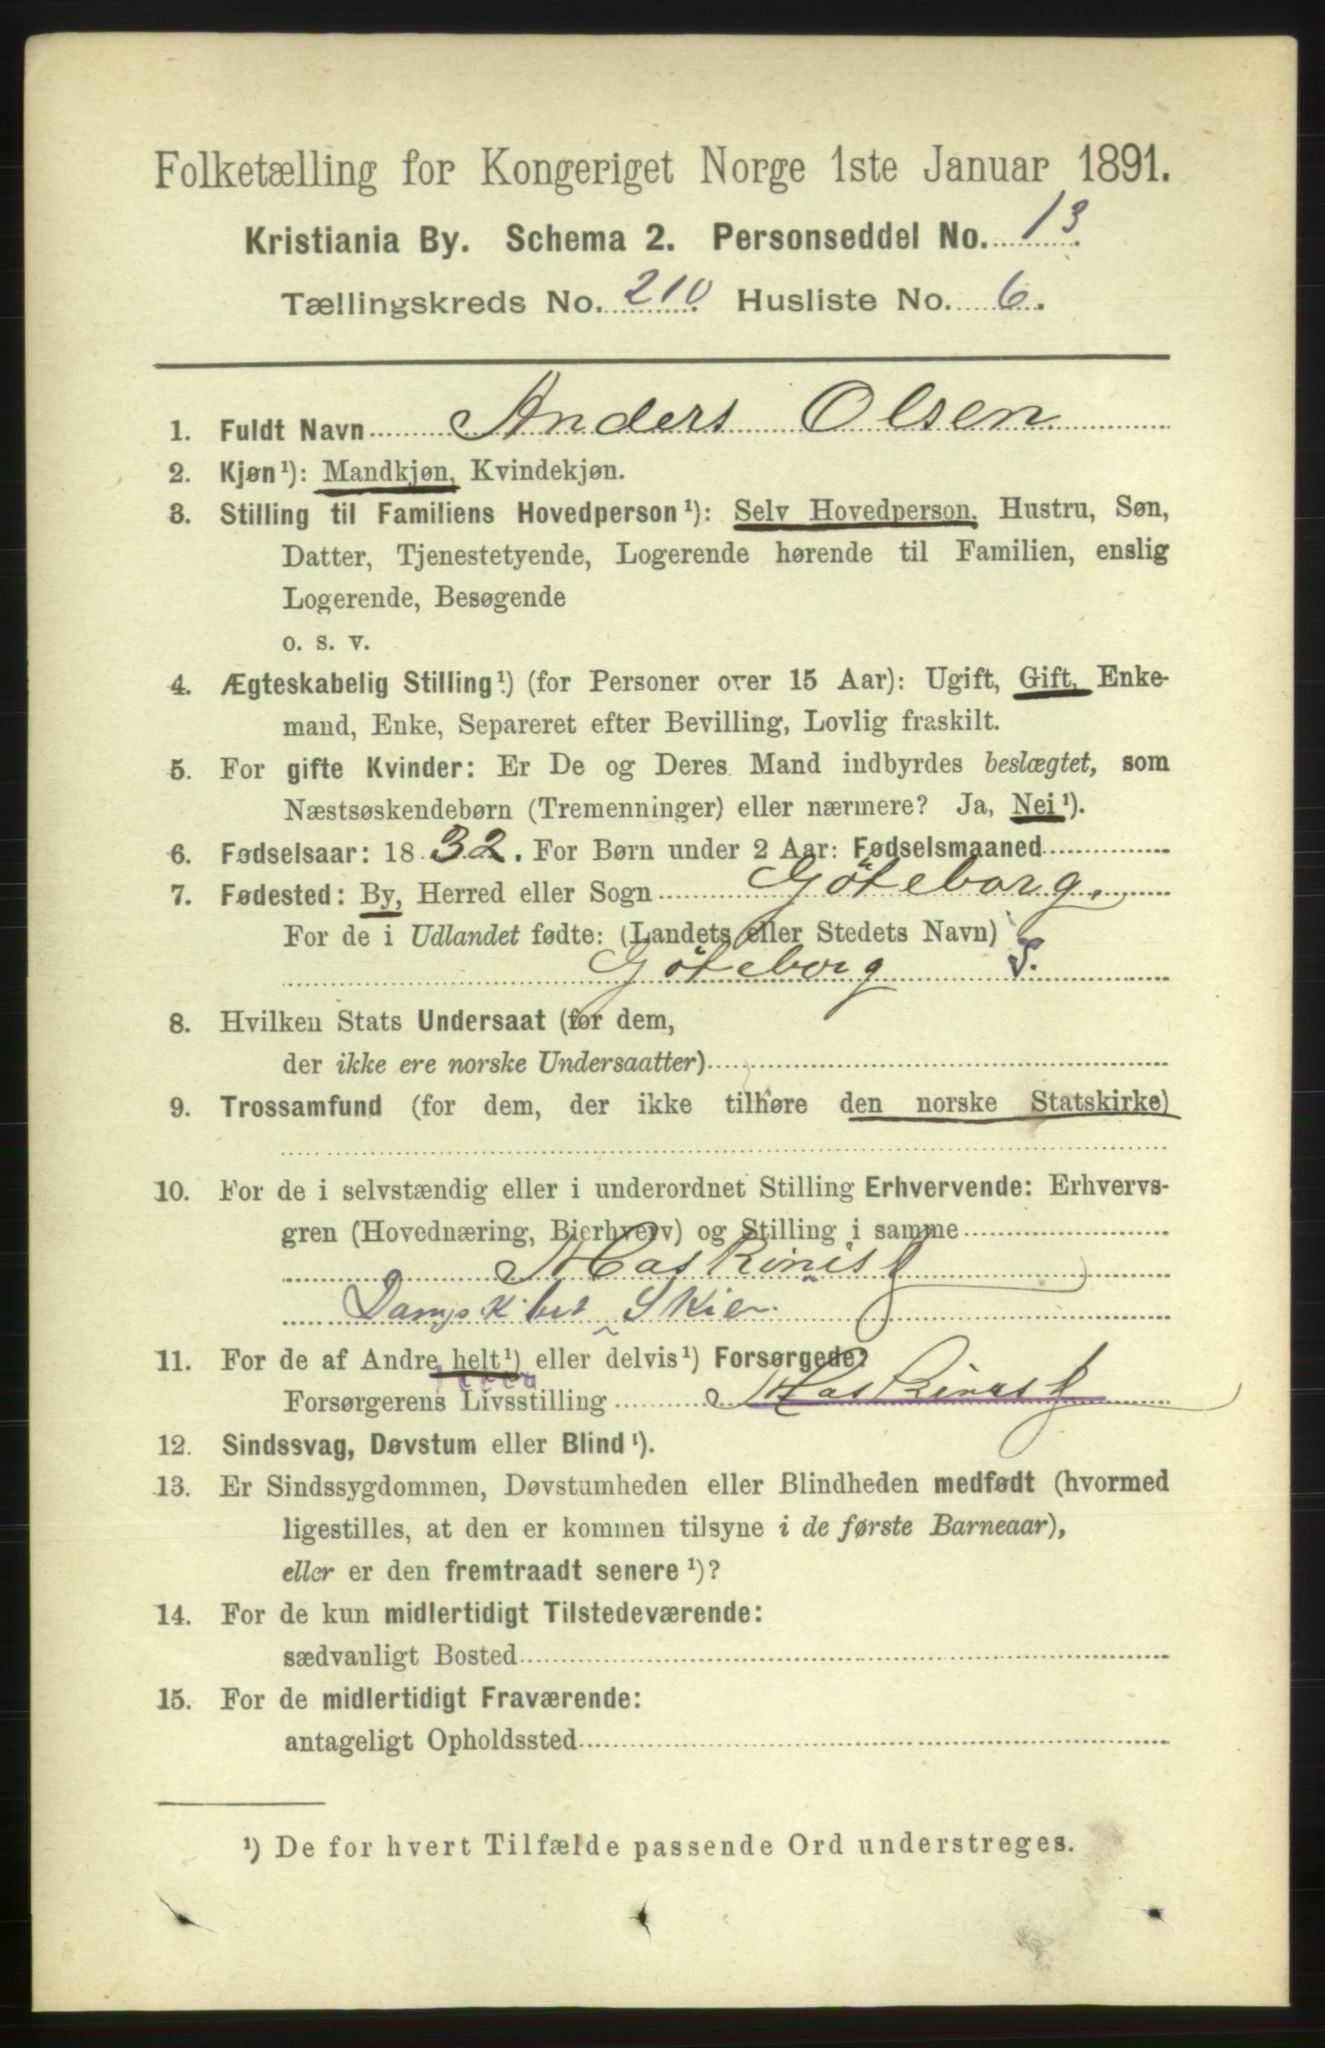 Folketælling for Kongeriget Norge 1ste Januar 1891.
Kristiania By. Schema 2. Personseddel No. 13
Tællingskreds No. 210. Husliste No. 6.
1. Fuldt Navn Anders Olsen
2. Kjøn¹): Mandkjøn, Kvindekjøn.
3. Stilling til Familiens Hovedperson¹): Selv Hovedperson, Hustru, Søn,
Datter, Tjenestetyende, Logerende hørende til Familien, enslig
Logerende, Besøgende
o. s. v.
4. Ægteskabelig Stilling¹) (for Personer over 15 Aar): Ugift, Gift, Enke-
mand, Enke, Separeret efter Bevilling, Lovlig fraskilt.
5. For gifte Kvinder: Er De og Deres Mand indbyrdes beslægtet, som
Næstsøskendebørn (Tremenninger) eller nærmere? Ja, Nei¹).
6. Fødselsaar: 1832. For Børn under 2 Aar: Fødselsmaaned
7. Fødested: By, Herred eller Sogn Göteborg.
For de i Udlandet fødte: (Landets eller Stedets Navn)
Göteborg S.
8. Hvilken Stats Undersaat (for dem,
der ikke ere norske Undersaatter)
9. Trossamfund (for dem, der ikke tilhøre den norske Statskirke)
10. For de i selvstændig eller i underordnet Stilling Erhvervende: Erhvervs-
gren (Hovednæring, Bierhverv) og Stilling i samme
Maskinist
Dampskibet "Skien"
11. For de af Andre helt¹) eller delvis¹) Forsørgede:
Forsørgerens Livsstilling Maskinist
12. Sindssvag, Døvstum eller Blind¹).
13. Er Sindssygdommen, Døvstumheden eller Blindheden medfødt (hvormed
ligestilles, at den er kommen tilsyne i de første Barneaar),
eller er den fremtraadt senere¹)?
14. For de kun midlertidigt Tilstedeværende:
sædvanligt Bosted
15. For de midlertidigt Fraværende:
antageligt Opholdssted
¹) De for hvert Tilfælde passende Ord understreges.